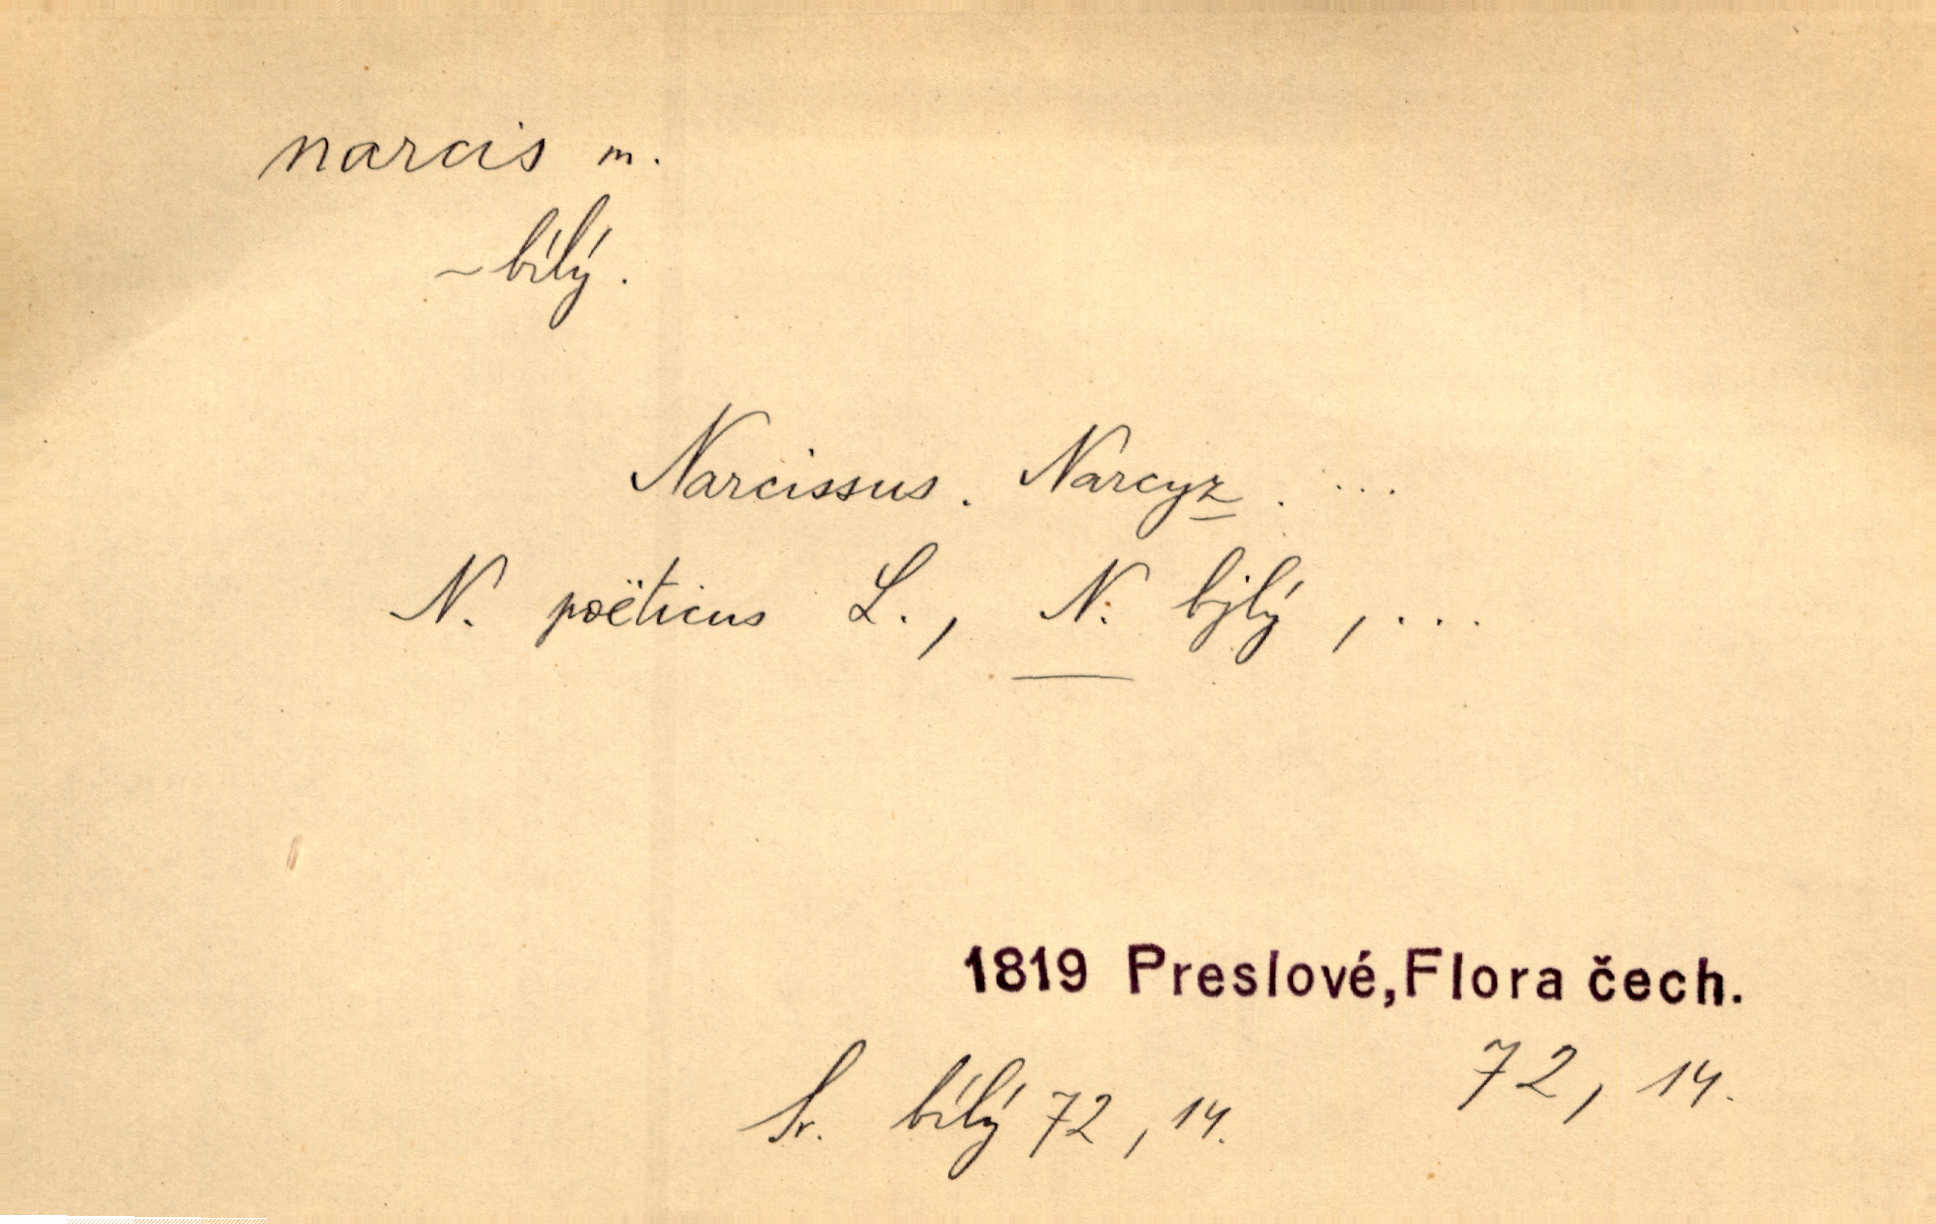 narcis m.
~ bílý.
Narcissus. Narcyz. ...
N. poëticus L., N. bjlý, ...
1819 Preslové, Flora čech.
72, 14.
Sr. bílý 72, 14.